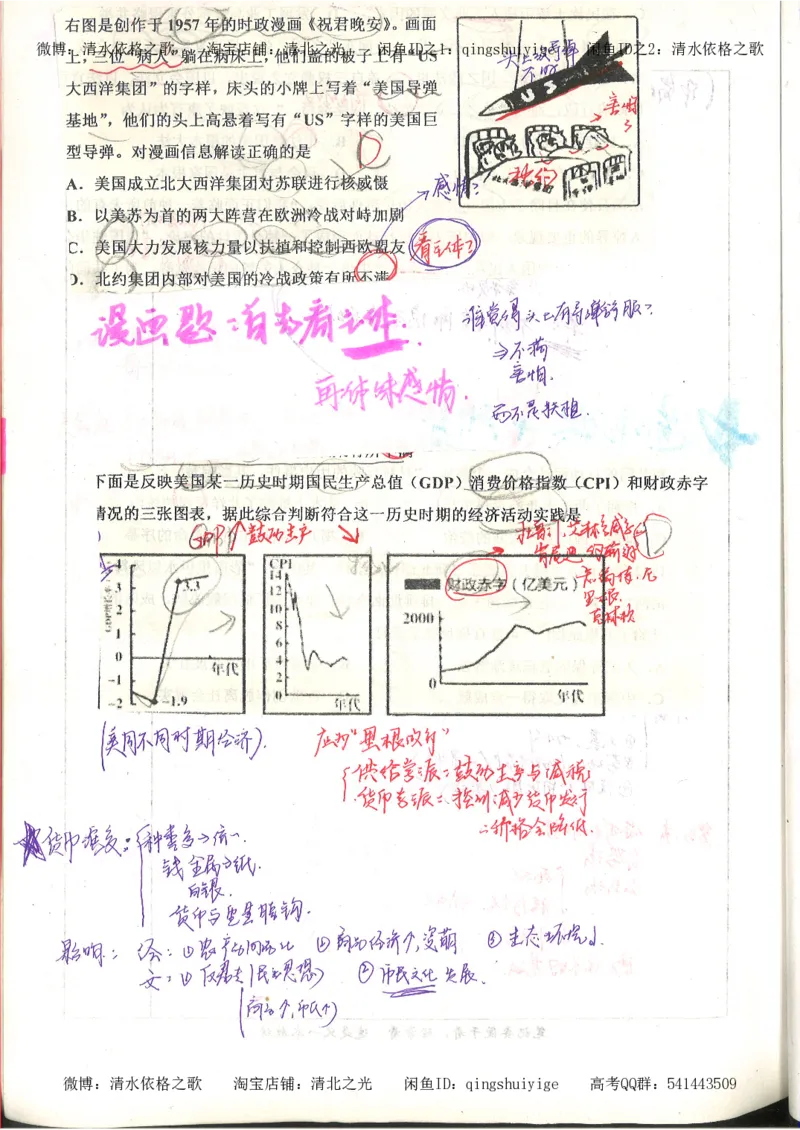 右图是创作于1957年的时政漫画《祝君晚安》。画面
微博：清水依格之歌 淘宝店铺：清北之光 闲鱼ID之1：qingshuiyige 闲鱼ID之2：清水依格之歌
上，三位“病人”躺在病床上，他们盖的被子上有“US
大西洋集团”的字样，床头的小牌上写着“美国导弹
基地”，他们的头上高悬着写有“US”字样的美国巨
型导弹。对漫画信息解读正确的是
D
头上放导弹
不服
US
害怕
北大西洋集团
A．美国成立北大西洋集团对苏联进行核威慑
感情？
B．以美苏为首的两大阵营在欧洲冷战对峙加剧
C．美国大力发展核力量以扶植和控制西欧盟友
看主体？
D．北约集团内部对美国的冷战政策有所不满
漫画题：首先看主体.
再体味感情.
谁觉得头上有导弹舒服？
⇒不满
害怕.
而不是扶植.
下面是反映美国某一历史时期国民生产总值（GDP）消费价格指数（CPI）和财政赤字
情况的三张图表，据此综合判断符合这一历史时期的经济活动实践是
GDP↑鼓励生产
杜鲁门，艾森豪威尔
肯尼迪 约翰逊
里根.
克林顿
4
3
2
1
0
-1
-2
3.4
-1.9
年代
CPI
14
12
10
8
6
4
2
0
年代
财政赤字（亿美元）
2000
0
年代
(美国不同时期经济).
应为“里根政府”
供给学派：鼓励生产与减税
货币学派：控制减少货币发行
∴价格会降低.
货币演变：种类多→统一.
钱 金属→纸.
白银.
影响：经：①农产品商品化 ②商品经济↑,资萌 ③生态环境↓.
文：①反君主(民主思想) ②市民文化发展.
微博：清水依格之歌 淘宝店铺：清北之光 闲鱼ID：qingshuiyige 高考QQ群：541443509